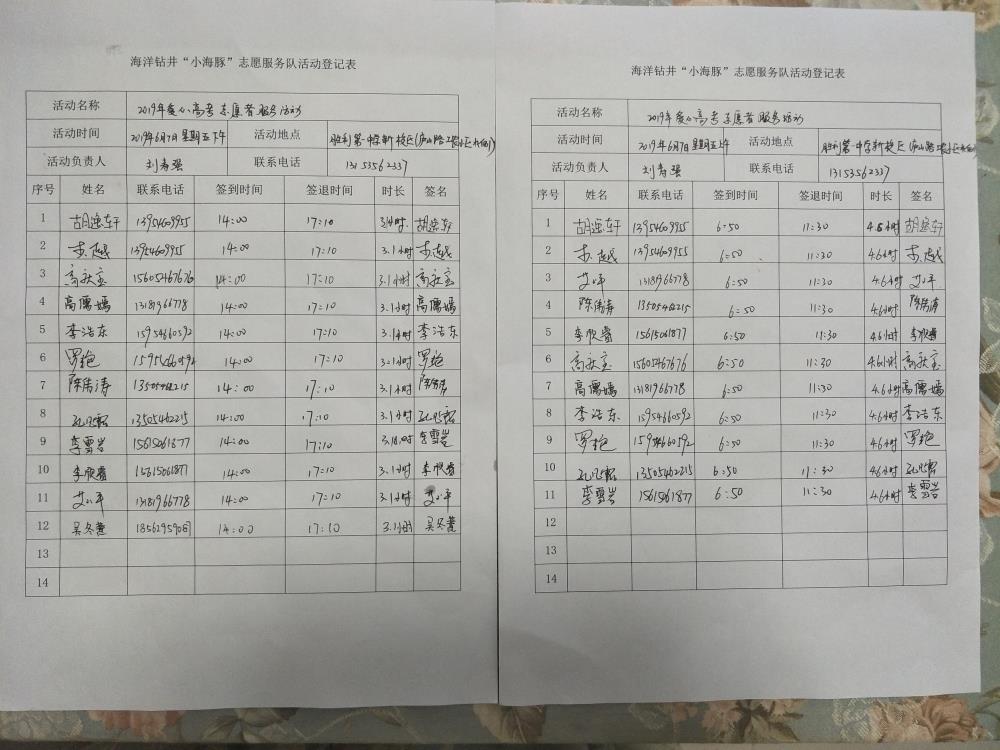 海洋钻井“小海豚”志愿服务队活动登记表
活动名称 2019年爱心高考志愿者服务活动
活动时间 2019年6月7日 星期五下午 活动地点 胜利第一中学新校区
活动负责人 刘寿强 联系电话 13153562337
序号 姓名 联系电话 签到时间 签退时间 时长 签名
1 胡遥轩 13954609955 14:00 17:10
2 13954609955 14:00 17:10 3.1小时
3 高秋宝 15605467676 14:00 17:10 3.1小时 高秋宝
4 高儒嫣 13181966778 14:00 17:10 3.1小时 高儒嫣
5 李浩东 15954660592 14:00 17:10 3.1小时 李浩东
6 罗艳 15954660592 14:00 17:10 3.1小时 罗艳
7 陈伟涛 13505462215 14:00 17:10 3.1小时 陈伟涛
8 13505462215 14:00 17:10 3.1小时
9 李雪岩 15615061877 14:00 17:10 3.1小时 李雪岩
10 李欣睿 15615061877 14:00 17:10 3.1小时 李欣睿
11 艾小平 13181966778 14:00 17:10 3.1小时 艾小平
12 吴冬萱 14:00 17:10 3.1小时 吴冬萱
13
14
海洋钻井“小海豚”志愿服务队活动登记表
活动名称 2019年爱心高考志愿者服务活动
活动时间 2019年6月7日 星期五上午 活动地点 胜利第一中学新校区
活动负责人 刘寿强 联系电话 13153562337
序号 姓名 联系电话 签到时间 签退时间 时长 签名
1 胡遥轩 13954609955 6:50 11:30 4.6小时 胡遥轩
2 13954609955 6:50 11:30 4.6小时
3 艾小平 13181966778 6:50 11:30 4.6小时 艾小平
4 陈伟涛 13505462215 6:50 11:30 4.6小时 陈伟涛
5 李欣睿 15615061877 6:50 11:30 4.6小时 李欣睿
6 高秋宝 15605467676 6:50 11:30 4.6小时 高秋宝
7 高儒嫣 13181966778 6:50 11:30 4.6小时 高儒嫣
8 李浩东 15954660592 6:50 11:30 4.6小时 李浩东
9 罗艳 15954660592 6:50 11:30 4.6小时 罗艳
10 13505462215 6:50 11:30 4.6小时
11 李雪岩 15615061877 6:50 11:30 4.6小时 李雪岩
12
13
14